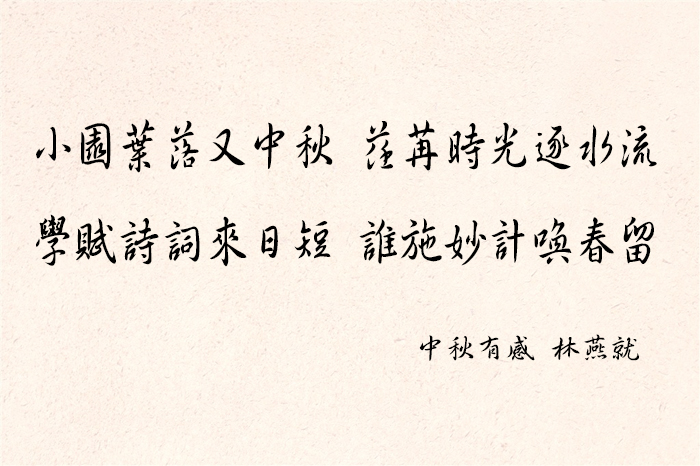 小園葉落又中秋 荏苒時光逐水流
學賦詩詞來日短 誰施妙計喚春留
中秋有感 林燕就